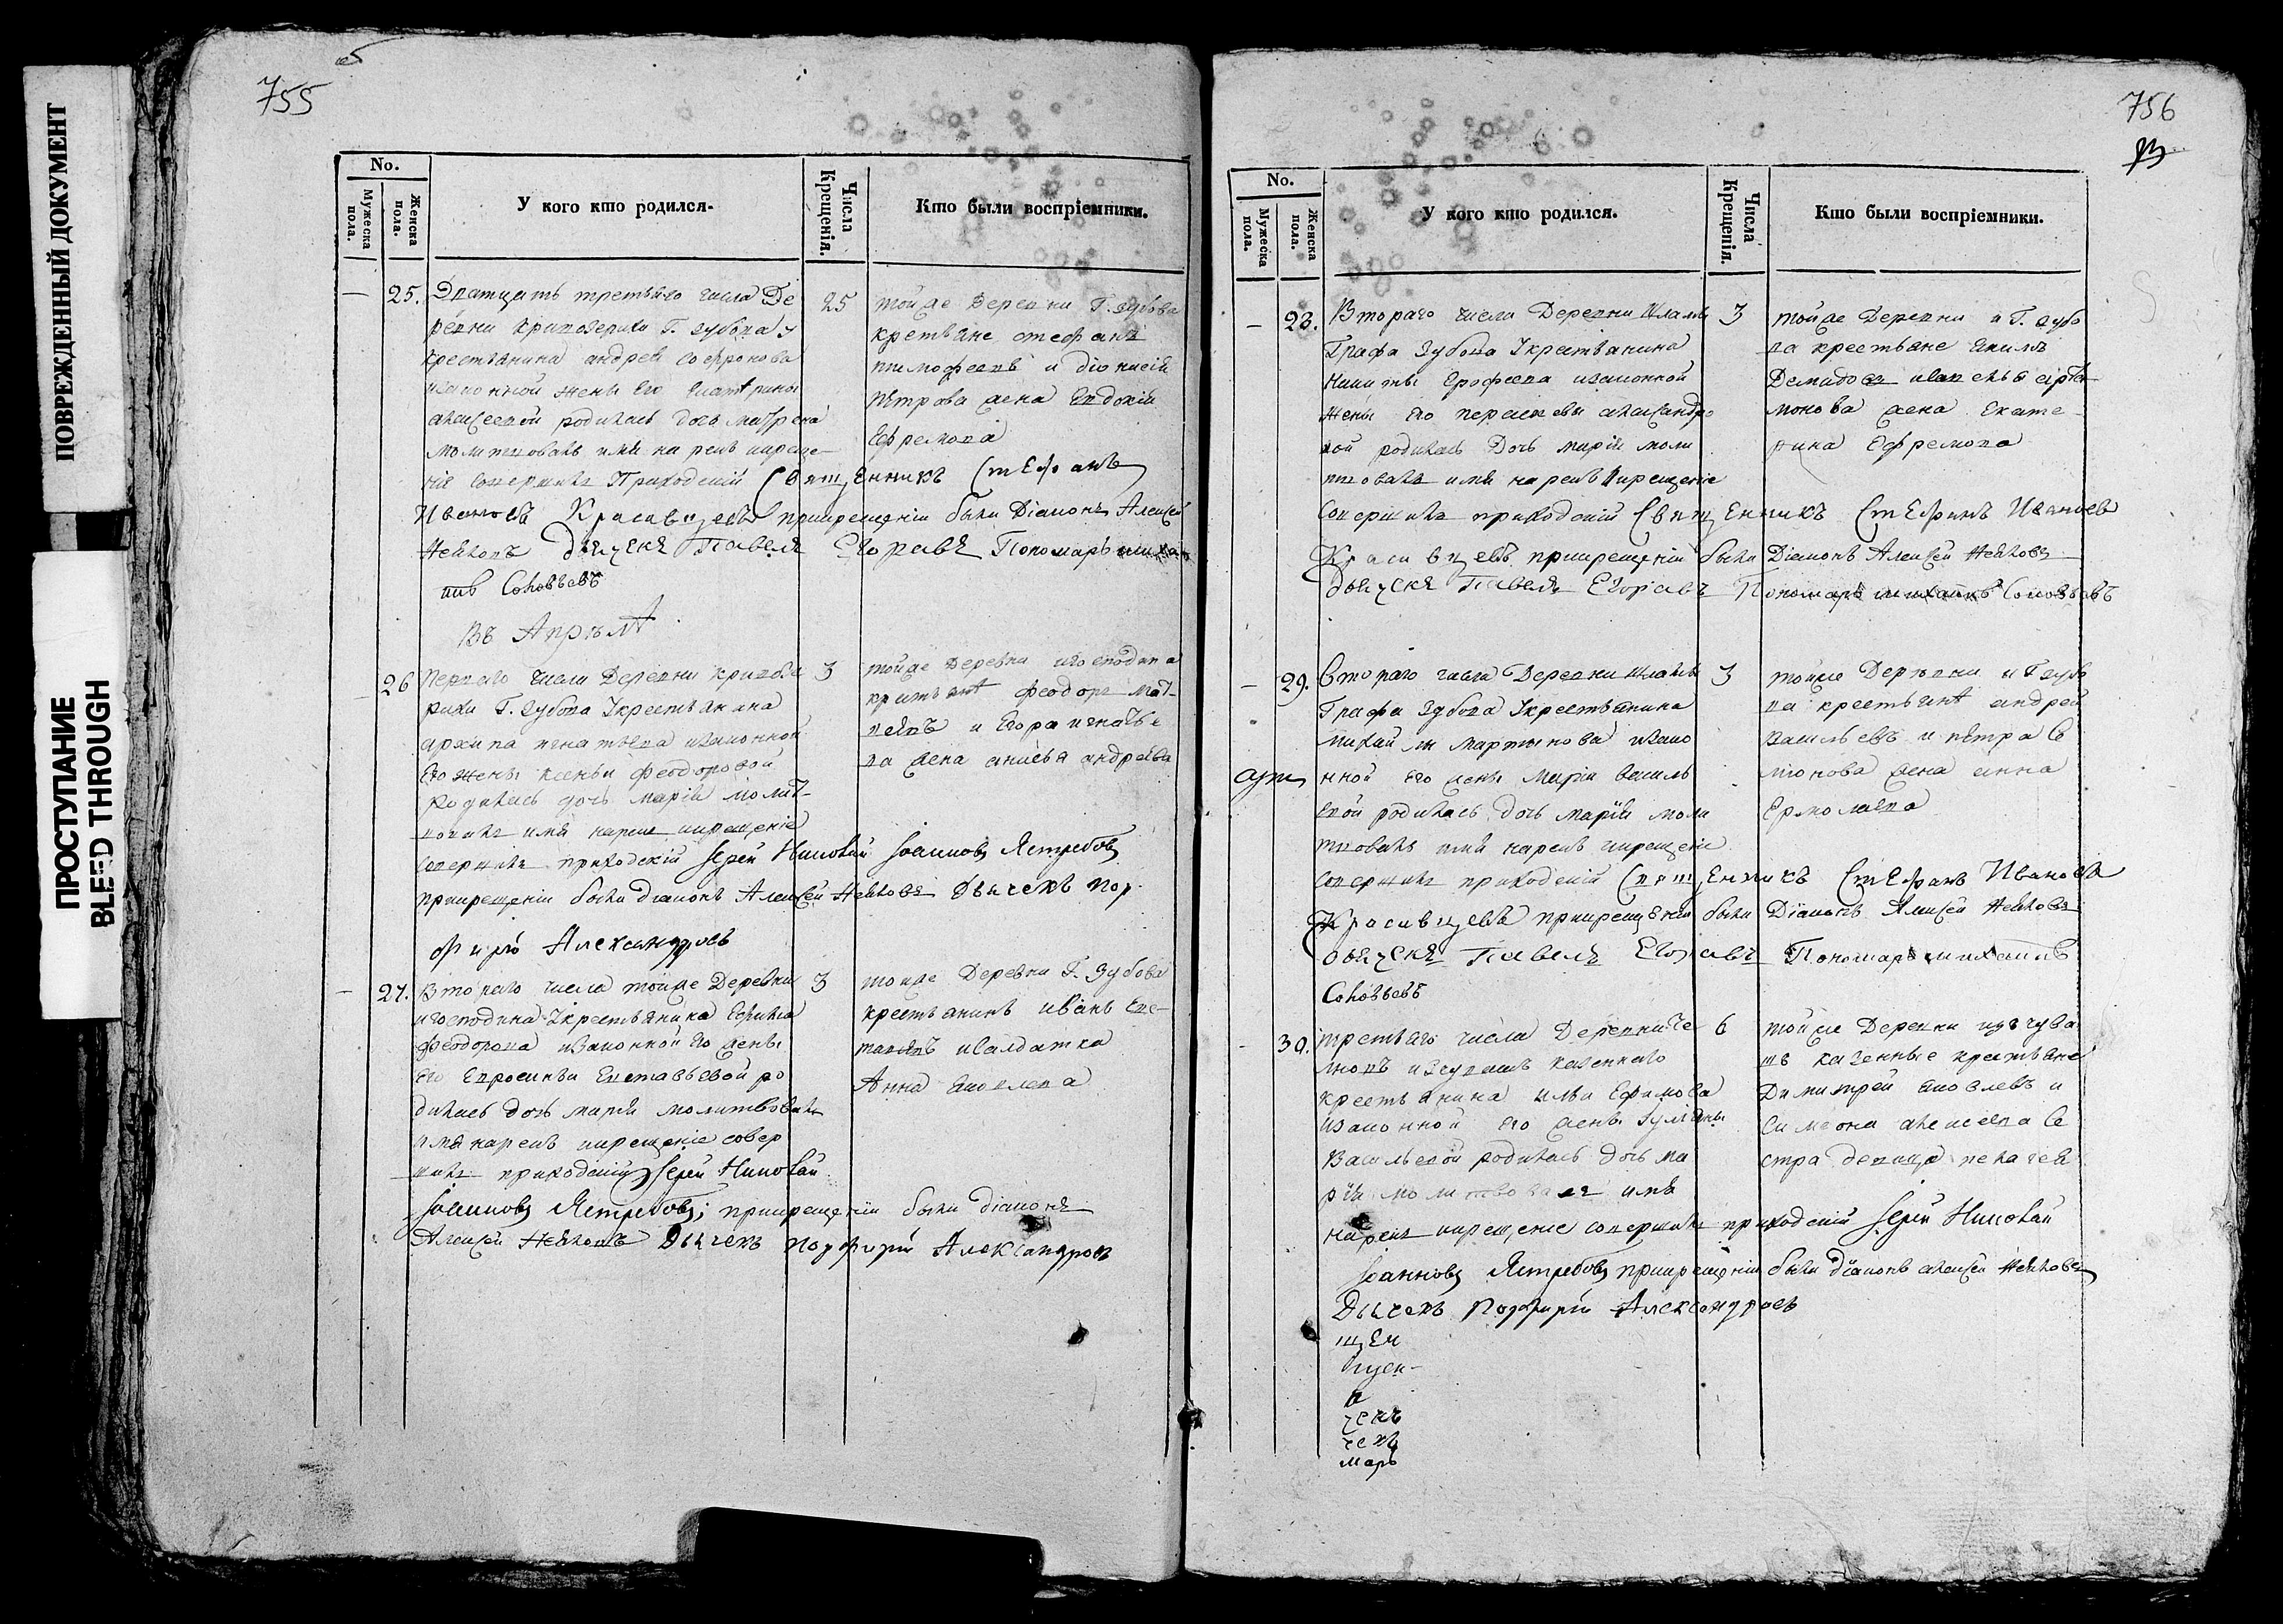 ПОВРЕЖДЕННЫЙ ДОКУМЕНТ
ПРОСТУПАНИЕ
BLEED THROUGH
755
No.
Мужеска пола.
Женска пола.
У кого кто родился.
Числа Крещенія.
Кто были воспріемники.
25. Дватцать третьяго числа Де
ревни Кривозерихи Г. Зубова у
крестьянина андрея софронова
изаконной жены его
алексеевой родилась дочь матрена
молитвовалъ имя нарекъ икреще
ніе совершилъ Приходскій Священникъ Стефанъ
Ивановъ Красавцевъ прикрещеніи были Діаконъ Алексей
Нейковъ дьячекъ Павелъ Егоравъ Пономарь михаи
илъ Соловьевъ
25
тойже деревни Г. Зубова
кретьяне стефанъ
тимофеевъ и діонисія
петрова жена Евдокія
Ефремова
Въ Апрелѣ
26 Перваго числа Деревни Кривозе
рихи Г. Зубова Укрестьянина
архипа игнатьева изаконной
Его жены ксеньи феодоровой
Родилась дочь марія молит
вовалъ имя нарекъ икрещеніе
совершилъ приходскій Іерей Николай Іоанновъ Ястребовъ
прикрещеніи были діаконъ Алексей Нейковъ Дьячекъ Пор
фирій Александровъ
3
тойже деревни игосподина
феодоръ мат
веевъ и Егора игнатье
ва жена анисья андреева
27. Втораго числа тойже Деревни
игосподина Укрестьянина Ефима
Феодорова изаконной его жены
Его Евросиньи Евстафьевой ро
дилась дочь марія молитвовалъ
имя нарекъ икрещеніе совер
шилъ приходскій Іерей Николай
Іоанновъ Ястребовъ; прикрещеніи были діаконъ
Алексей Нейковъ Дьячекъ порфирій Александровъ
3
тойже Деревни Г. Зубова
крестьянинъ иванъ Евс
исалдатка
Анна Яковлева
756
No.
Мужеска пола.
Женска пола.
У кого кто родился.
Числа Крещенія.
Кто были воспріемники.
28. Втораго числа Деревни
Графа Зубова Укрестьянина
Никиты Ерофеева изаконной
жены его
вой родилась Дочь марія моли
твовалъ имя нарекъ икрещеніе
Совершилъ приходскій Священникъ Стефанъ Ивановъ
Красавцевъ прикрещеніи были Діаконъ Алексей Нейковъ
дьячекъ Павелъ Егоравъ Пономарь михаилъ Соловьевъ
3
тойже Деревни и Г. Зубо
ва крестьяне
Демидовъ
монова жена Екате
рина Ефремова
29. Втораго числа Деревни
Графа Зубова Укрестьянина
михайлы мартынова изако
нной его жены Маріи василь
евой родилась дочь марія моли
твовалъ имя нарекъ икрещеніе
совершилъ приходскій Священникъ Стефанъ Ивановъ
Красавцевъ прикрещеніи были Діаконъ Алексей Нейковъ
дьячекъ Павелъ Егоравъ Пономарь михаилъ
Соловьевъ
3
тойже Деревни и Г Зубо
ва крестьянѣ андрей
васильевъ и петра Се
мионова жена анна
Ермолаева
30. третьяго числа Деревни
изчувашъ казеннаго
крестьянина ильи Ефимова
изаконной его жены
Васильевой родилась дочь ма
рія молитвовалъ имя
нарекъ икрещеніе совершилъ приходскій Іерей Николай
Іоанновъ Ястребовъ прикрещеніи были діаконъ алексей Нейковъ
Дьячекъ Порфирій Александровъ
6
тойже Деревни изчува
шъ казенные крестьяне
Димитрей яковлевъ и
Симеона алексеева Се
стра девица пелагея
щен
чекъ
чекъ
марь